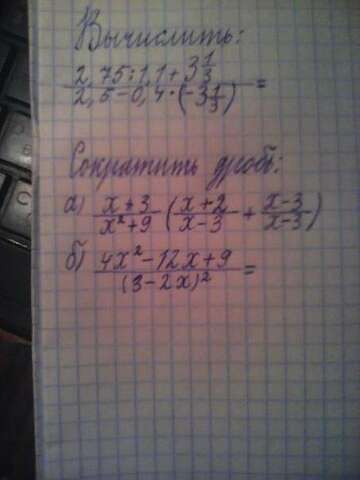 Вычислить:
2,75:1,1+3 1/3
2,5-0,4·(-3 1/3) =
Сократить дробь:
а) x+3/x²+9 (x+2/x-3 + x-3/x-3)
б) 4x²-12x+9/(3-2x)² =